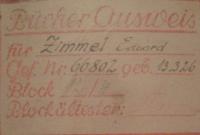 Bücher Ausweis
für Zimmel Eduard
Gef. Nr. 66802 geb. 13.3.26
Block
Blockältester: